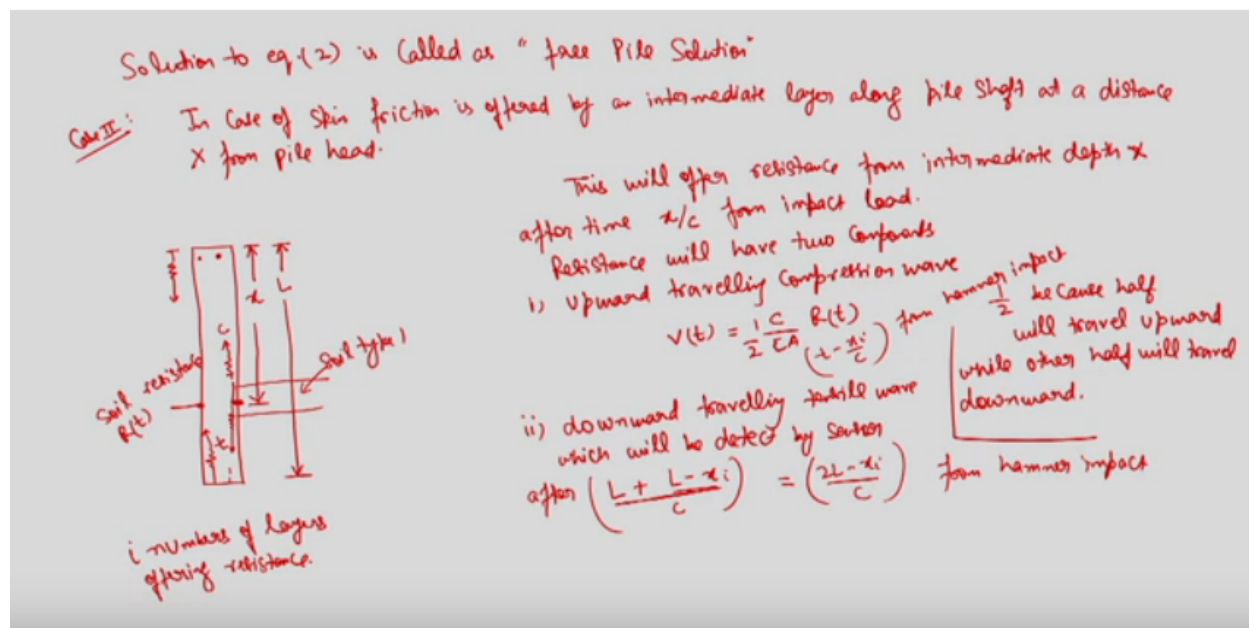 Solution to eq.(2) is Called as "free Pile Solution"
Case II: In Case of Skin friction is offered by an intermediate layer along pile shaft at a distance
x from pile head.
This will offer resistance from intermediate depth x
after time x/c from impact load.
Resistance will have two Components
i) upward travelling Compression wave
V(t) = 1/2 C/EA R(t) (t - xi/c) from hammer impact
1/2 because half
will travel upward
while other half will travel
downward.
ii) downward travelling tensile wave
which will be detect by sensor
after (L + L-xi / c) = (2L-xi / c) from hammer impact
x
L
C
Soil type 1
Soil resistance
R(t)
t
i numbers of layers
offering resistance.